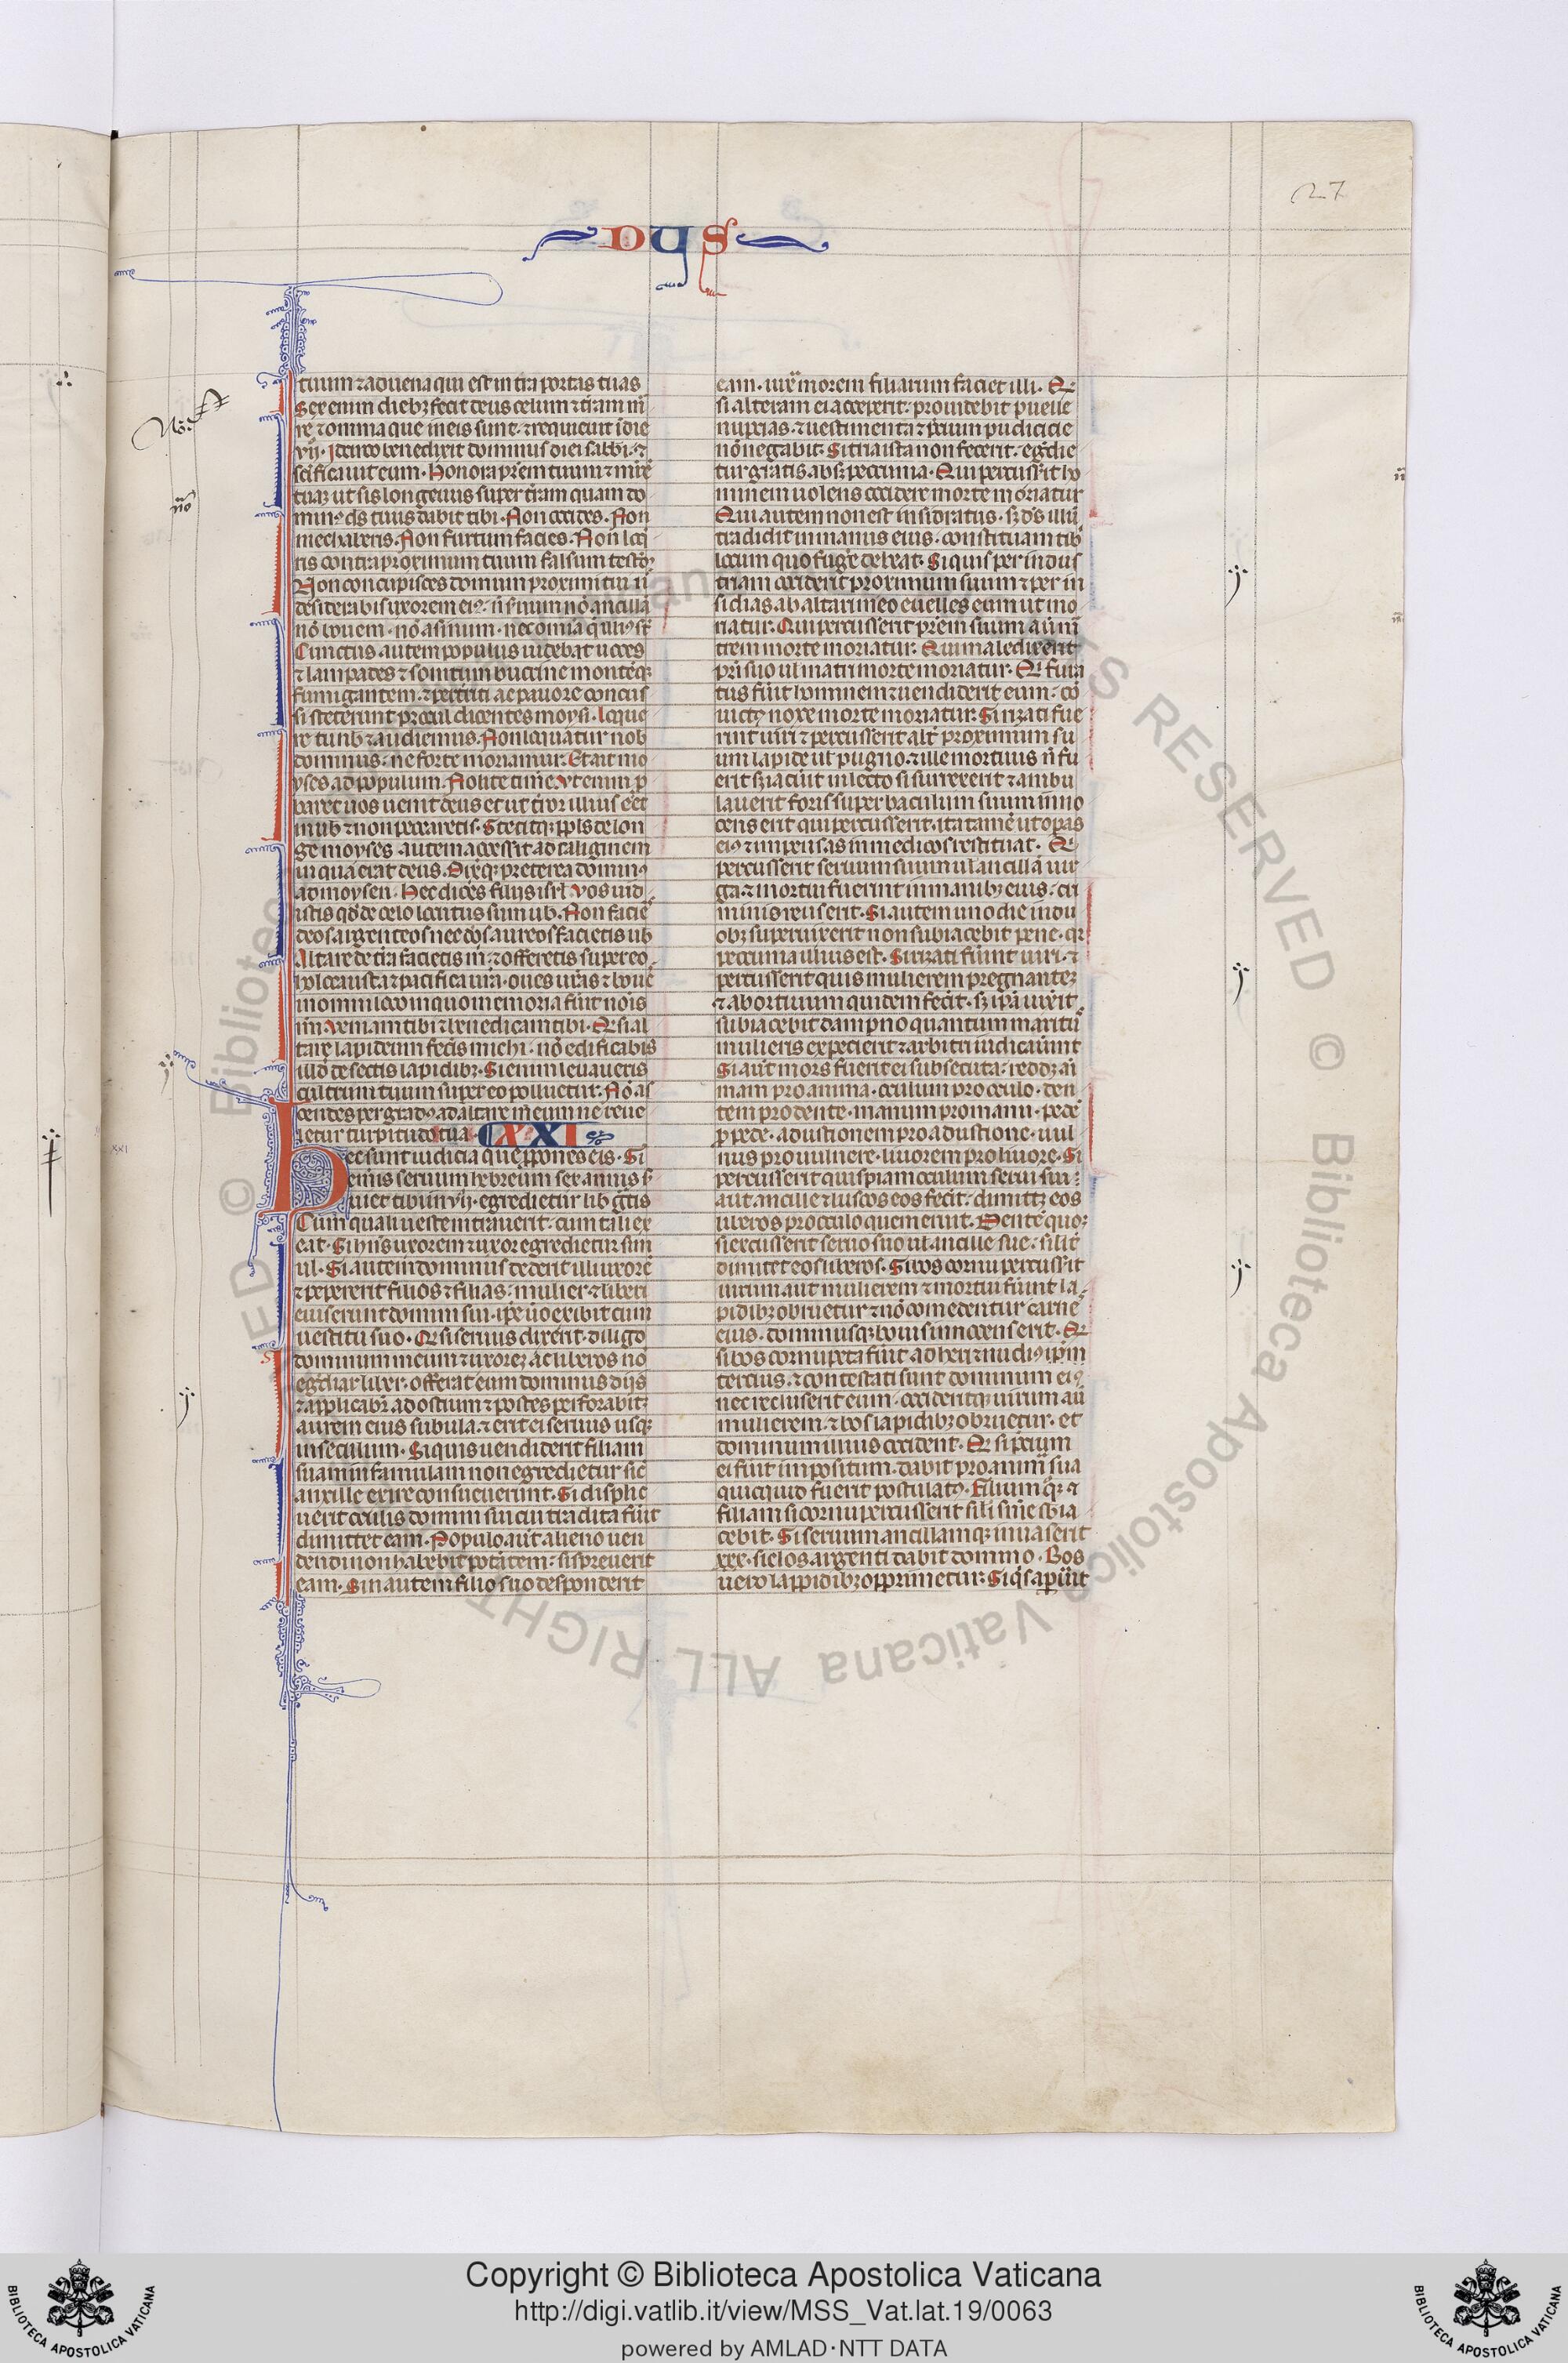 27
DYS
tuum ⁊ aduena qui est intra portas tuas
Sex enim dieb; fecit deus celum ⁊ t̃ram m̃
re ⁊ omnia que in eis sunt. ⁊ requieuit ĩ die
vij. Idcirco benedixit dominus diei sabbi. ⁊
sc̃ificauit eum. Honora pr̃em tuum ⁊ mr̃e
tuaȝ ut sis longeuus super t̃ram quam do
minꝰ ds̃ tuus dabit tibi. Non occides. Non
mechaberis. Non furtum facies. Non loq̃
ris contra proximum tuum falsum testoȝ
Non concupisces domum proximi tui ñ
desiderabis uxorem eiꝰ. ñ ẜuum nõ ancillã
nõ bouem. nõ asinum. nec omĩa q̃ illiꝰ sũt
Cunctus autem populus uidebat uoces
⁊ lampades ⁊ sonitum buccine montẽq;
fumigantem. ⁊ pertriti ac pauore concus
si steterunt procul dicentes moysi. loque
re tu nb̃ ⁊ audiemus. Non loquatur nob̃
dominus. ne forte moriamur. Et ait mo
yses ad populum. Nolite tim̃e. Vt enim ꝓ
baret uos uenit deus et ut t̃ror illius eẽt
in ub̃ ⁊ non peccaretis. Stetitq; ppl̃s de lon
ge moyses autem accessit ad caliginem
in qua erat deus. Dixq; preterea dominꝰ
ad moysen. Hec dices filijs isrl̃. Vos uid
istis qđ de celo locutus sum ub̃. Non facie
deos argenteos nec dos aureos facietis ub̃
Altare de t̃ra facietis m̃. ⁊ offeretis super eo
holocausta ⁊ pacifica ura. oues ur̃as ⁊ boue
in omni loco in quo memoria fũit nois
m̃i. Veniam tibi ⁊ benedicam tibi. Et si al
tare lapideum fecis michi. nõ edificabis
illđ de sectis lapidib;. Si enim leuaueris
cultrum tuum super eo polluetur. Nõ as
cendes per gradꝰ ad altare meum ne reue
letur turpitudo tua. XXI
Hec sunt iudicia que ꝓpones eis. Si
emis seruum hebreum sex annis ẜ
uiet tibi in vij. egredietur lib̃ gr̃tis
Cum quali ueste intrauerit. cum tali ex
eat. Si hñs uxorem ⁊ uxor egredietur sim
ul. Si autem dominus dederit illi uxorẽ
⁊ pepererit filios ⁊ filias. mulier ⁊ liberi
eius erunt domini sui. ipse ũo exibit cum
uestitu suo. Qr̃ si seruus dixerit. diligo
dominum meum ⁊ uxoreȝ ac liberos nõ
egrediar liber. offerat eum dominus dijs
⁊ applicabr̃ ad ostium ⁊ postes perforabitq;
aurem eius subula. ⁊ erit ei seruus usq;
in seculum. Si quis uendiderit filiam
suam in famulam non egredietur sic̃
ancille exire consueuerunt. Si displic
uerit oculis domini sui cui tradita fũit
dimittet eam. Populo aũt alieno uen
dendi non habebit potãtem. si spreuerit
eam. Sin autem filio suo desponderit
eam. iux̃ morem filiarum faciet illi. Et
si alteram ei acceperit. prouidebit puelle
nuptias. ⁊ uestimenta ⁊ p̃cium pudicicie
nõ negabit. Si tria ista non fecerit. eg̃die
tur gratis absq; peccunia. Qui percusẜit ho
minem uolens occidere morte moriatur
Qui autem non est insidiatus. sȝ ds̃ illũ
tradidit in manus eius. constituam tib̃
locum quo fug̃e debeat. Si quis per indus
triam occiderit proximum suum ⁊ per in
sidias ab altari meo euelles eum ut mo
riatur. Qui percusserit pr̃em suum aũ m̃
trem morte moriatur. Qui maledixerit
pr̃i suo ul matri morte moriatur. Qi fura
tus fũit hominem ⁊ uendiderit eum. cõ
uictꝰ noxe morte moriatur. Si rixati fue
rint uiri ⁊ percusserit alt̃ proximum su
um lapide ul pugno. ⁊ ille mortuus ñ fu
erit sȝ iacũit in lecto si surrexerit ⁊ ambu
lauerit foris super baculum suum inno
cens erit qui percusserit. ita tamẽ ut opas
eiꝰ ⁊ inpensas in medicos restituat. Qi
percusserit seruum suum ul ancillã uir
ga. ⁊ mortui fuerint in manib; eius. cri
minis reus erit. Si autem uno die ul du
ob; superuixerit non subiacebit pene. qr̃
peccunia illius est. Si rixati fũint uiri. ⁊
percusserit quis mulierem pregnanteȝ
⁊ abortiuum quidem fecit. sȝ ip̃a uixit
subiacebit dampno quantum maritũ
mulieris expecierit ⁊ arbitri iudicaũint
Si aũt mors fuerit ei subsecuta. reddȝ ãi
mam pro anima. oculum pro oculo. den
tem pro dente. manum pro manu. pedẽ
ꝓ pede. adustionem pro adustione. uul
nus pro uulnere. liuorem pro liuore. Si
percusserit quispiam oculum serui sui
aut ancille ⁊ luscos eos fecit. dimittȝ eos
liberos pro oculo quem eruit. Dente quoq;
si excusserit seruo suo ul ancille sue. silit̃
dimittet eos liberos. Si bos cornu percusẜit
uirum aut mulierem ⁊ mortui fũint la
pidib; obruetur ⁊ nõ comedentur carne
eius. dominusq; bouis innocens erit. Qr̃
si bos cornupeta fũit ab heri ⁊ nudiꝰ
tercius. ⁊ contestati sunt dominum eiꝰ
nec recluserit eum. occideritq; uirum aũ
mulierem. ⁊ bos lapidib; obruetur. et
dominum illius occident. Qr̃ si p̃cium
ei fũit impositum. dabit pro anim̃ sua
quicquid fuerit postulatꝰ. Filium q̃q; ⁊
filiam si cornu percusserit sili sñie sbia
cebit. Si seruum ancillamq; inuaserit
xxx. siclos argenti dabit domino. Bos
uero lappidib; opprimetur. Si q̃s apũit
xxi
Copyright © Biblioteca Apostolica Vaticana
http://digi.vatlib.it/view/MSS_Vat.lat.19/0063
powered by AMLAD·NTT DATA
BIBLIOTECA APOSTOLICA VATICANA
BIBLIOTECA APOSTOLICA VATICANA
© Biblioteca Apostolica Vaticana ALL RIGHTS RESERVED